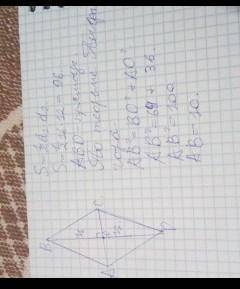 S=½d₁d₂
S=½·16·12=96
ABO - прямоуг.
По теореме Пифа
гора
AB²=BO²+AO²
AB²=64+36.
AB²=100
AB=10.
B
C
A
D